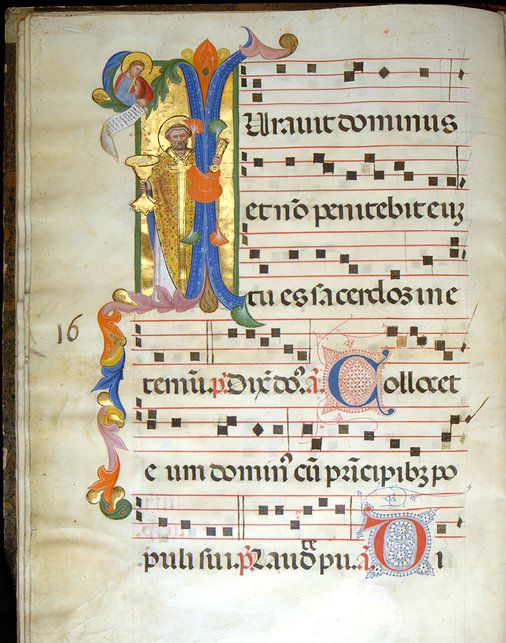 IUravit dominus
et nō penitebit euȝ
tu es sacerdos in e
ternū. p̄. Dix̄ do᷒. ā. Collocet
16
e um domin᷒ cū prīcipibȝ po
puli sui. p̄. Laud pu. ā. Di